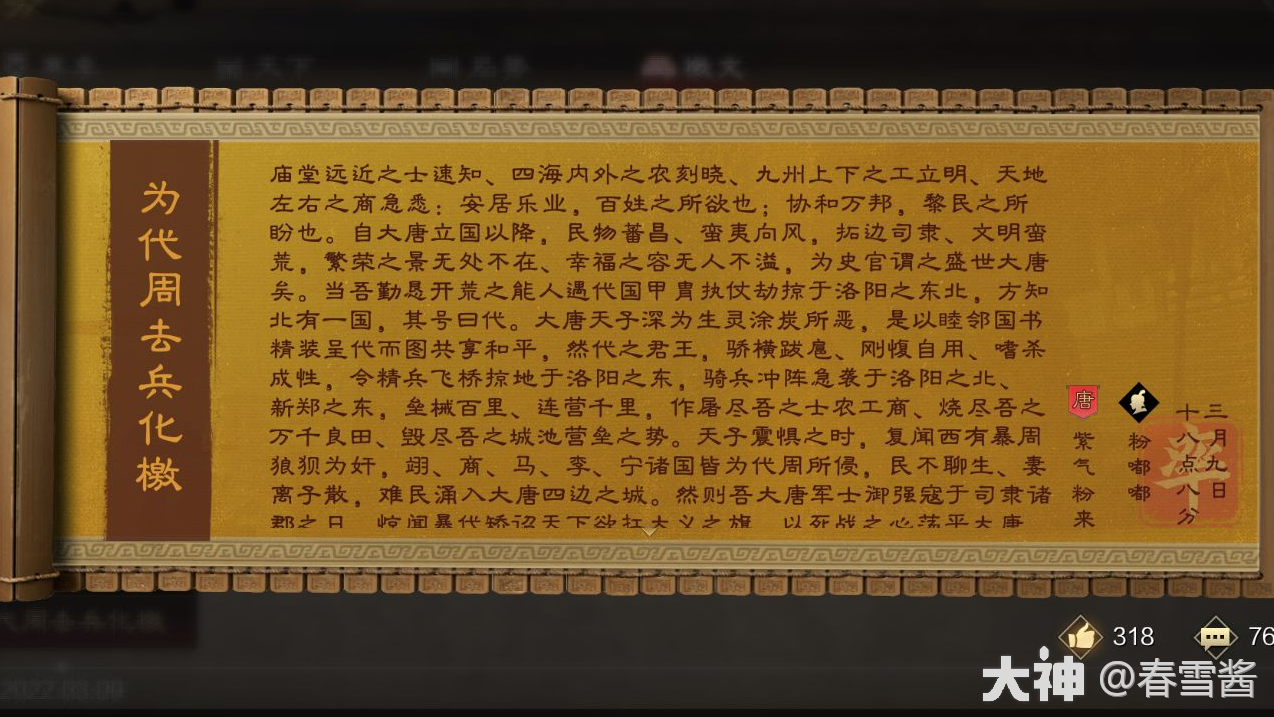 为代周去兵化檄
庙堂远近之士速知、四海内外之农刻晓、九州上下之工立明、天地
左右之商急悉：安居乐业，百姓之所欲也；协和万邦，黎民之所
盼也。自大唐立国以降，民物蕃昌、蛮夷向风，拓边司隶、文明蛮
荒，繁荣之景无处不在、幸福之容无人不溢，为史官谓之盛世大唐
矣。当吾勤恳开荒之能人遇代国甲胄执仗劫掠于洛阳之东北，方知
北有一国，其号曰代。大唐天子深为生灵涂炭所恶，是以睦邻国书
精装呈代而图共享和平，然代之君王，骄横跋扈、刚愎自用、嗜杀
成性，令精兵飞桥掠地于洛阳之东，骑兵冲阵急袭于洛阳之北、
新郑之东，垒械百里、连营千里，作屠尽吾之士农工商、烧尽吾之
万千良田、毁尽吾之城池营垒之势。天子震惧之时，复闻西有暴周
狼狈为奸，翊、商、马、李、宁诸国皆为代周所侵，民不聊生、妻
离子散，难民涌入大唐四边之城。然则吾大唐军士御强寇于司隶诸
郡之日，惊闻暴代矫诏天下欲扛大义之旗，以死战之心荡平大唐
唐
紫气粉来
粉嘟嘟
三月九日
十八点八分
率
318
76
大神 @春雪酱